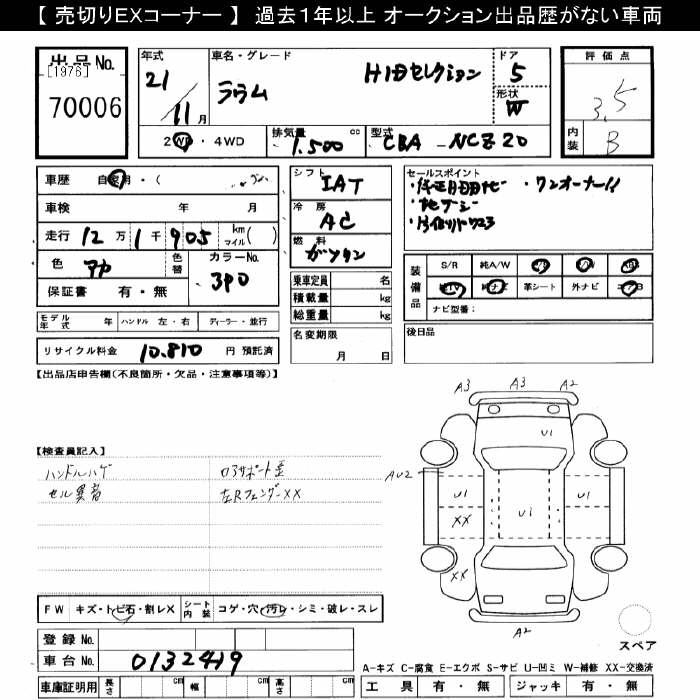 【 売切りEXコーナー 】 過去1年以上 オークション出品歴がない車両
出品 No.
[1976]
70006
年式
21
11 月
車名・グレード
ラウム
HIDセレクション
ドア
5
形状
W
評価点
3.5
内装
B
2WD・4WD
排気量
1.500 cc
型式
CBA - NCZ20
車歴 自家用・(
車検 年 月
走行 12 万 1 千 905 km マイル( )
色
色替
カラーNo.
3P0
保証書 有・無
モデル年式 年 ハンドル 左・右 ディーラー・並行
リサイクル料金 10.810 円 預託済
シフト
IAT
冷房
AC
燃料
ガソリン
乗車定員 名
積載量 kg
総重量 kg
名変期限
月 日
セールスポイント
・ワンオーナー!!
・地デジ
装備品
S/R 純A/W
革シート 外ナビ
ナビ型番:
後日品
【出品店申告欄(不良箇所・欠品・注意事項等)】
【検査員記入】
ハンドルハゲ
セル異音
ロアサポート歪
左Rフェンダー XX
A3 A3 A2
U1
AU2
U1 U1 U1
XX
XX
A2
スペア
FW キズ・トビ石・割レX
シート内装 コゲ・穴・汚レ・シミ・破レ・スレ
登録 No.
車台 No. 0132419
車庫証明用 長さ cm 幅 cm 高さ cm
A-キズ C-腐食 E-エクボ S-サビ U-凹ミ W-補修 XX-交換済
工具 有・無 ジャッキ 有・無